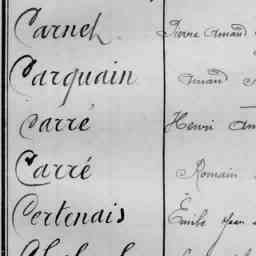 Carnet Pierre Amand
Carquain Amand
Carré Henri
Carré Romain
Certenais Émile Jean